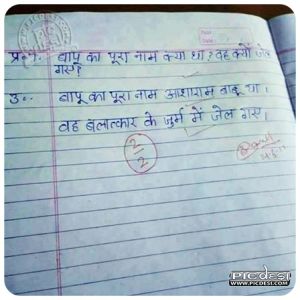 प्र०१. बापू का पूरा नाम क्या था? वह क्यों जेल
गए?
उ०. बापू का पूरा नाम आशाराम बापू था।
वह बलात्कार के जुर्म में जेल गए।
2/2
PICDESI
WWW.PICDESI.COM